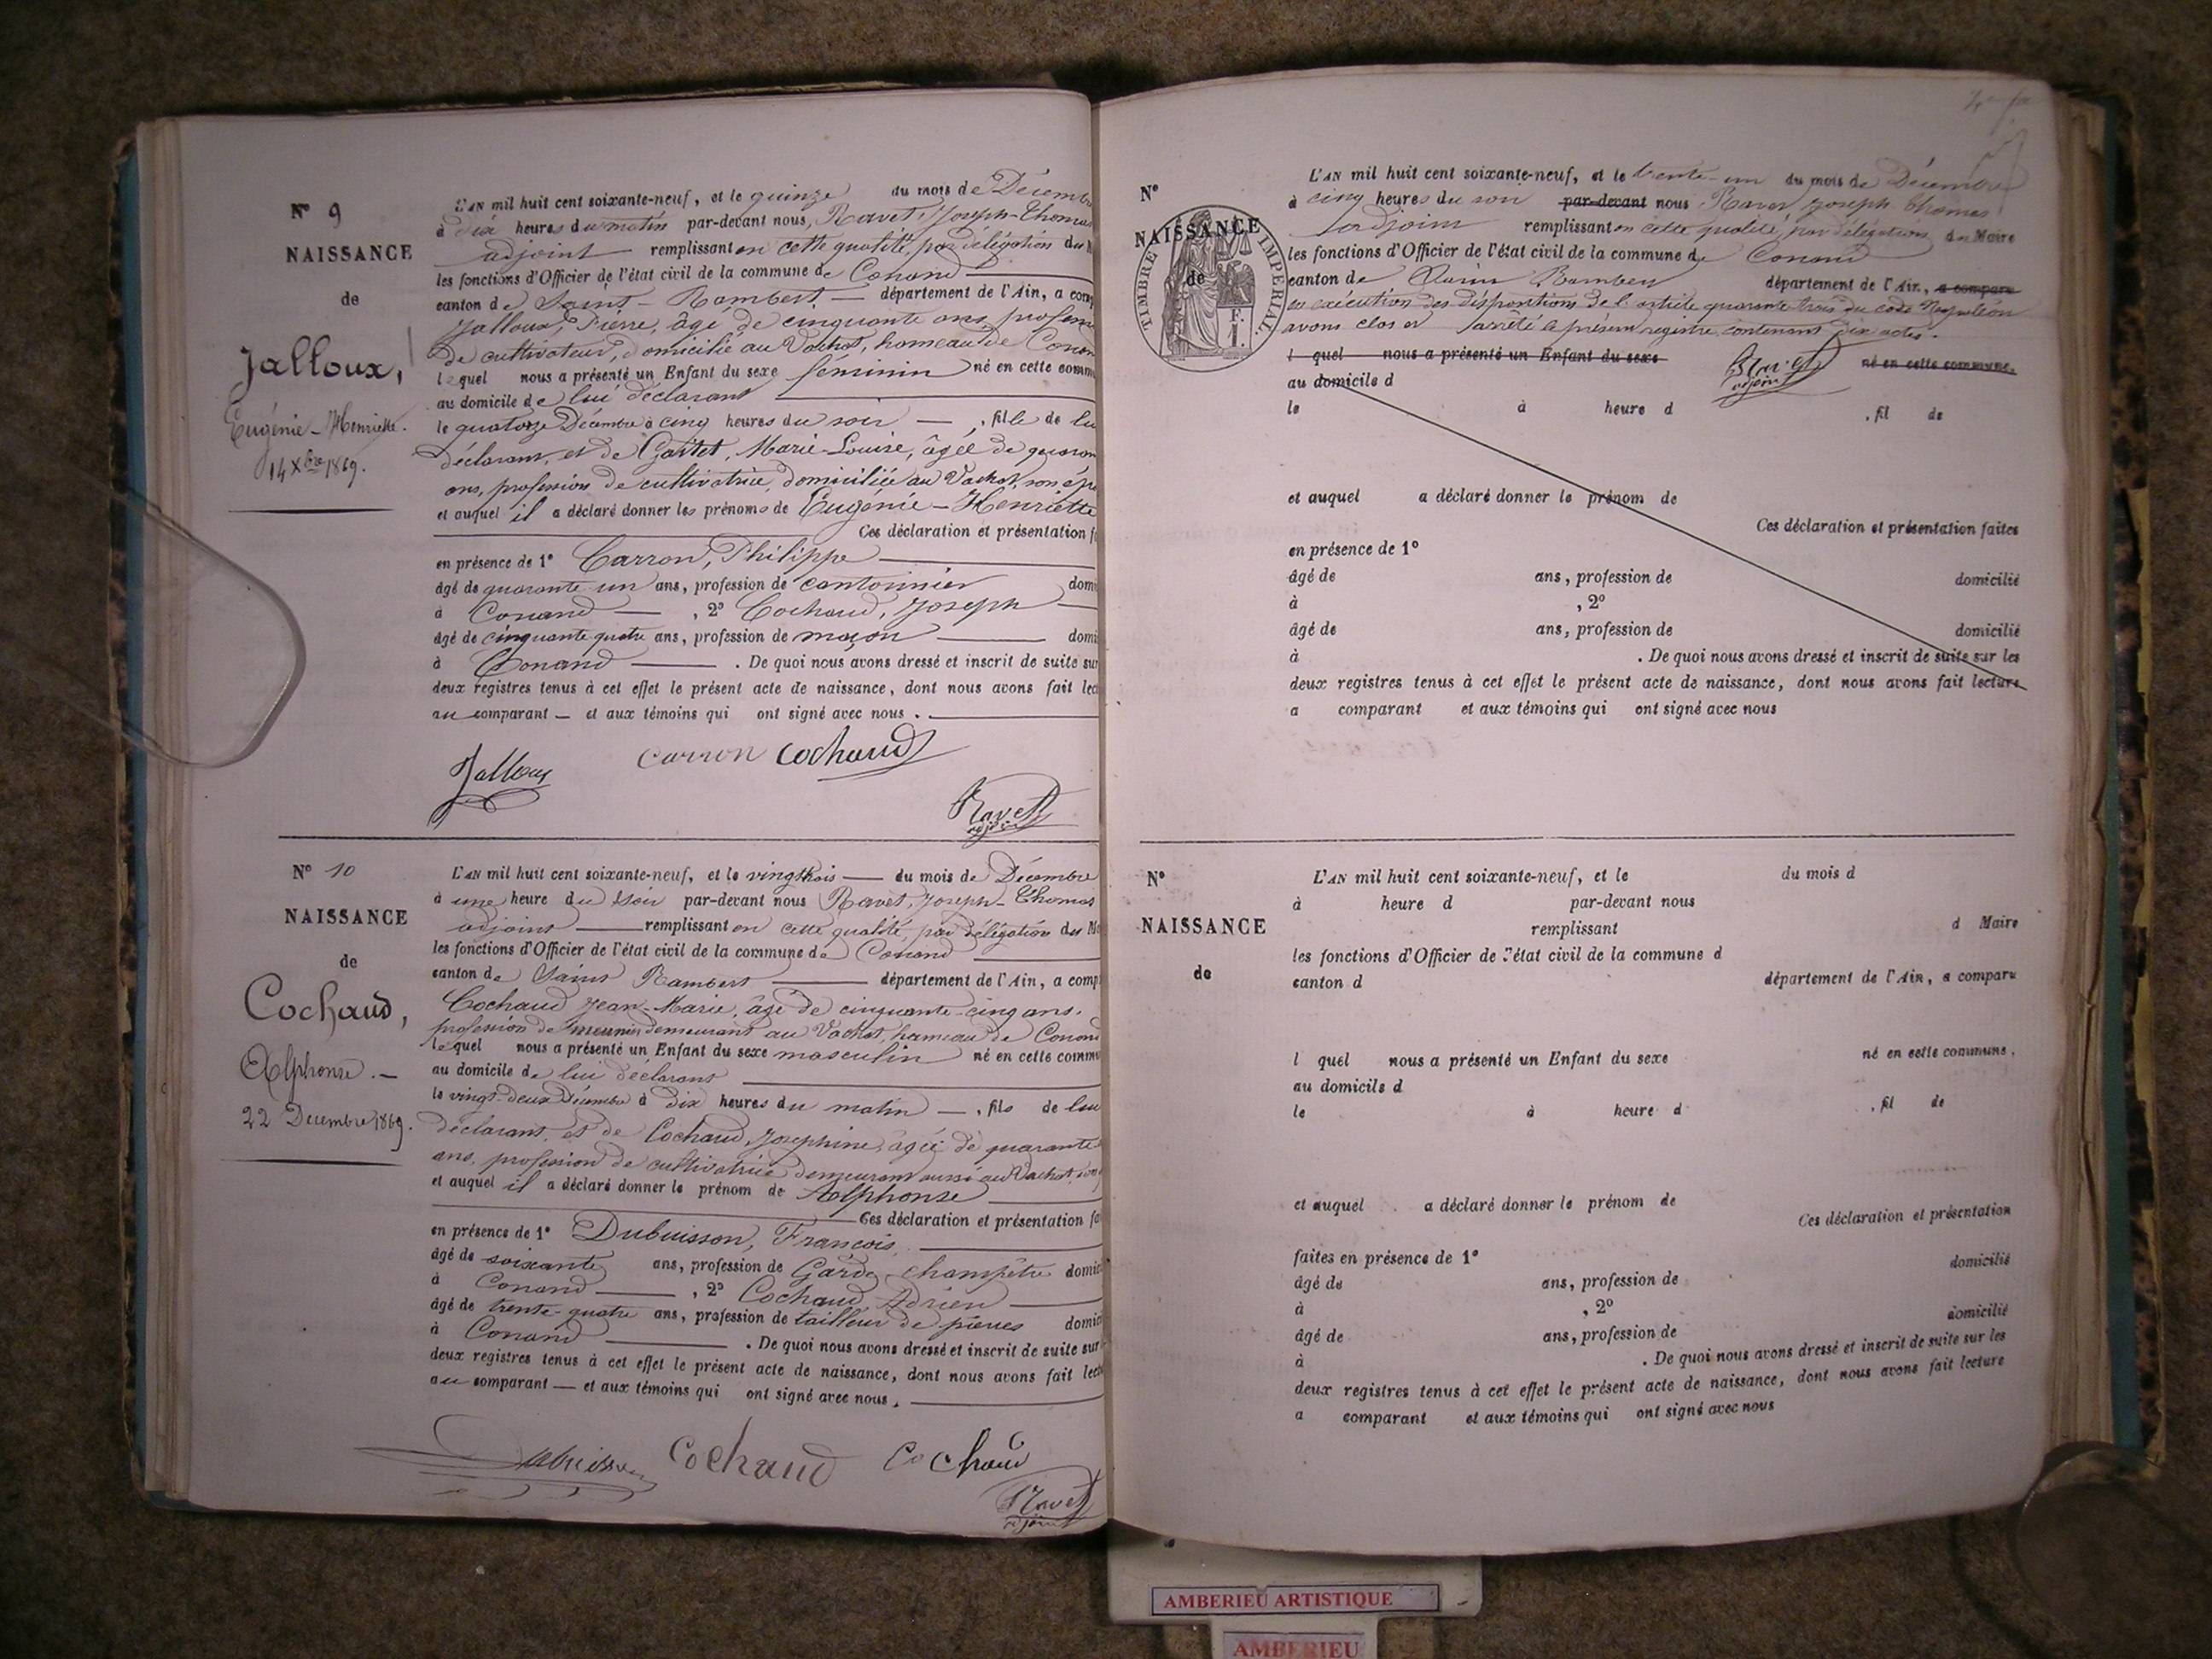 N° 9
NAISSANCE
de
Jalloux,
Eugénie-Henriette.
14 Xbre 1869.
L'AN mil huit cent soixante-neuf, et le quinze du mois de Décemb
à dix heures du matin par-devant nous, Ravet, Joseph-Thomas
adjoint remplissant en cette qualité, par délégation du
les fonctions d'Officier de l'état civil de la commune de Conand
canton de Saint-Rambert — département de l'Ain, a com
Jalloux, Pierre, âgé de cinquante ans, profess
de cultivateur, domicilié au Vachat, hameau de Conan
lequel nous a présenté un Enfant du sexe féminin né en cette comm
au domicile de lui déclarant
le quatorze Décembre à cinq heures du soir —, fille de lu
déclarant, et de Gartet, Marie-Louise, âgée de quaran
ans, profession de cultivatrice, domiciliée au Vachat, son ép
et auquel il a déclaré donner les prénoms de Eugénie-Henriette
Ces déclaration et présentation f
en présence de 1° Carron, Philippe
âgé de quarante un ans, profession de cantonnier domi
à Conand —, 2° Cochaud, Joseph
âgé de cinquante quatre ans, profession de maçon — domi
à Conand — . De quoi nous avons dressé et inscrit de suite sur
deux registres tenus à cet effet le présent acte de naissance, dont nous avons fait lec
au comparant — et aux témoins qui ont signé avec nous .
Jalloux Carron Cochaud
Ravet
adjoint
N° 10
NAISSANCE
de
Cochaud,
Alphonse.—
22 Decembre 1869.
L'AN mil huit cent soixante-neuf, et le vingt trois — du mois de Décembre
à une heure du soir par-devant nous Ravet, Joseph-Thomas
adjoint — remplissant en cette qualité, par délégation du M
les fonctions d'Officier de l'état civil de la commune de Conand
canton de Saint Rambert — département de l'Ain, a comp
Cochaud Jean-Marie, âgé de cinquante-cinq ans.
profession de meunier demeurant au Vachat, hameau de Conand
lequel nous a présenté un Enfant du sexe masculin né en cette commu
au domicile de lui déclarant
le vingt-deux Décembre à dix heures du matin —, fils de lui
déclarant, et de Cochaud, Josephine, âgée de quarante
ans, profession de cultivatrice demeurant aussi au Vachat, son
et auquel il a déclaré donner le prénom de Alphonse
Ces déclaration et présentation fa
en présence de 1° Dubuisson, François,
âgé de soixante ans, profession de Garde-champêtre domic
à Conand —, 2° Cochaud Adrien
âgé de trente-quatre ans, profession de tailleur de pierres domic
à Conand — . De quoi nous avons dressé et inscrit de suite sur
deux registres tenus à cet effet le présent acte de naissance, dont nous avons fait lect
au comparant — et aux témoins qui ont signé avec nous .
Dubuisson Cochaud Cochaud
Ravet
adjoint
N°
NAISSANCE
de
TIMBRE IMPÉRIAL.
F.
1.
L'AN mil huit cent soixante-neuf, et le trente-un du mois de Décembre
à cinq heures du soir par-devant nous Ravet Joseph Thomas
adjoint remplissant en cette qualité, par délégation du Maire
les fonctions d'Officier de l'état civil de la commune de Conand
canton de Saint Rambert département de l'Ain, a comparu
en exécution des dispositions de l'article quarante trois du code Napoléon
avons clos et arrêté le présent registre contenant dix actes.
l quel nous a présenté un Enfant du sexe né en cette commune,
Ravet
adjoint
au domicile d
le à heure d , fil de
et auquel a déclaré donner le prénom de
Ces déclaration et présentation faites
en présence de 1°
âgé de ans, profession de domicilié
à , 2°
âgé de ans, profession de domicilié
à . De quoi nous avons dressé et inscrit de suite sur les
deux registres tenus à cet effet le présent acte de naissance, dont nous avons fait lecture
a comparant et aux témoins qui ont signé avec nous
N°
NAISSANCE
de
L'AN mil huit cent soixante-neuf, et le du mois d
à heure d par-devant nous
remplissant d Maire
les fonctions d'Officier de l'état civil de la commune d
canton d département de l'Ain, a comparu
l quel nous a présenté un Enfant du sexe né en cette commune,
au domicile d
le à heure d , fil de
et auquel a déclaré donner le prénom de
Ces déclaration et présentation
faites en présence de 1°
âgé de ans, profession de domicilié
à , 2°
âgé de ans, profession de domicilié
à . De quoi nous avons dressé et inscrit de suite sur les
deux registres tenus à cet effet le présent acte de naissance, dont nous avons fait lecture
a comparant et aux témoins qui ont signé avec nous
AMBERIEU ARTISTIQUE
AMBERIEU